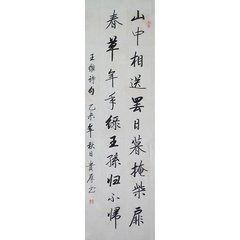 山中相送罢日暮掩柴扉
春草年年绿王孙归不归
王维诗句 乙未年秋日